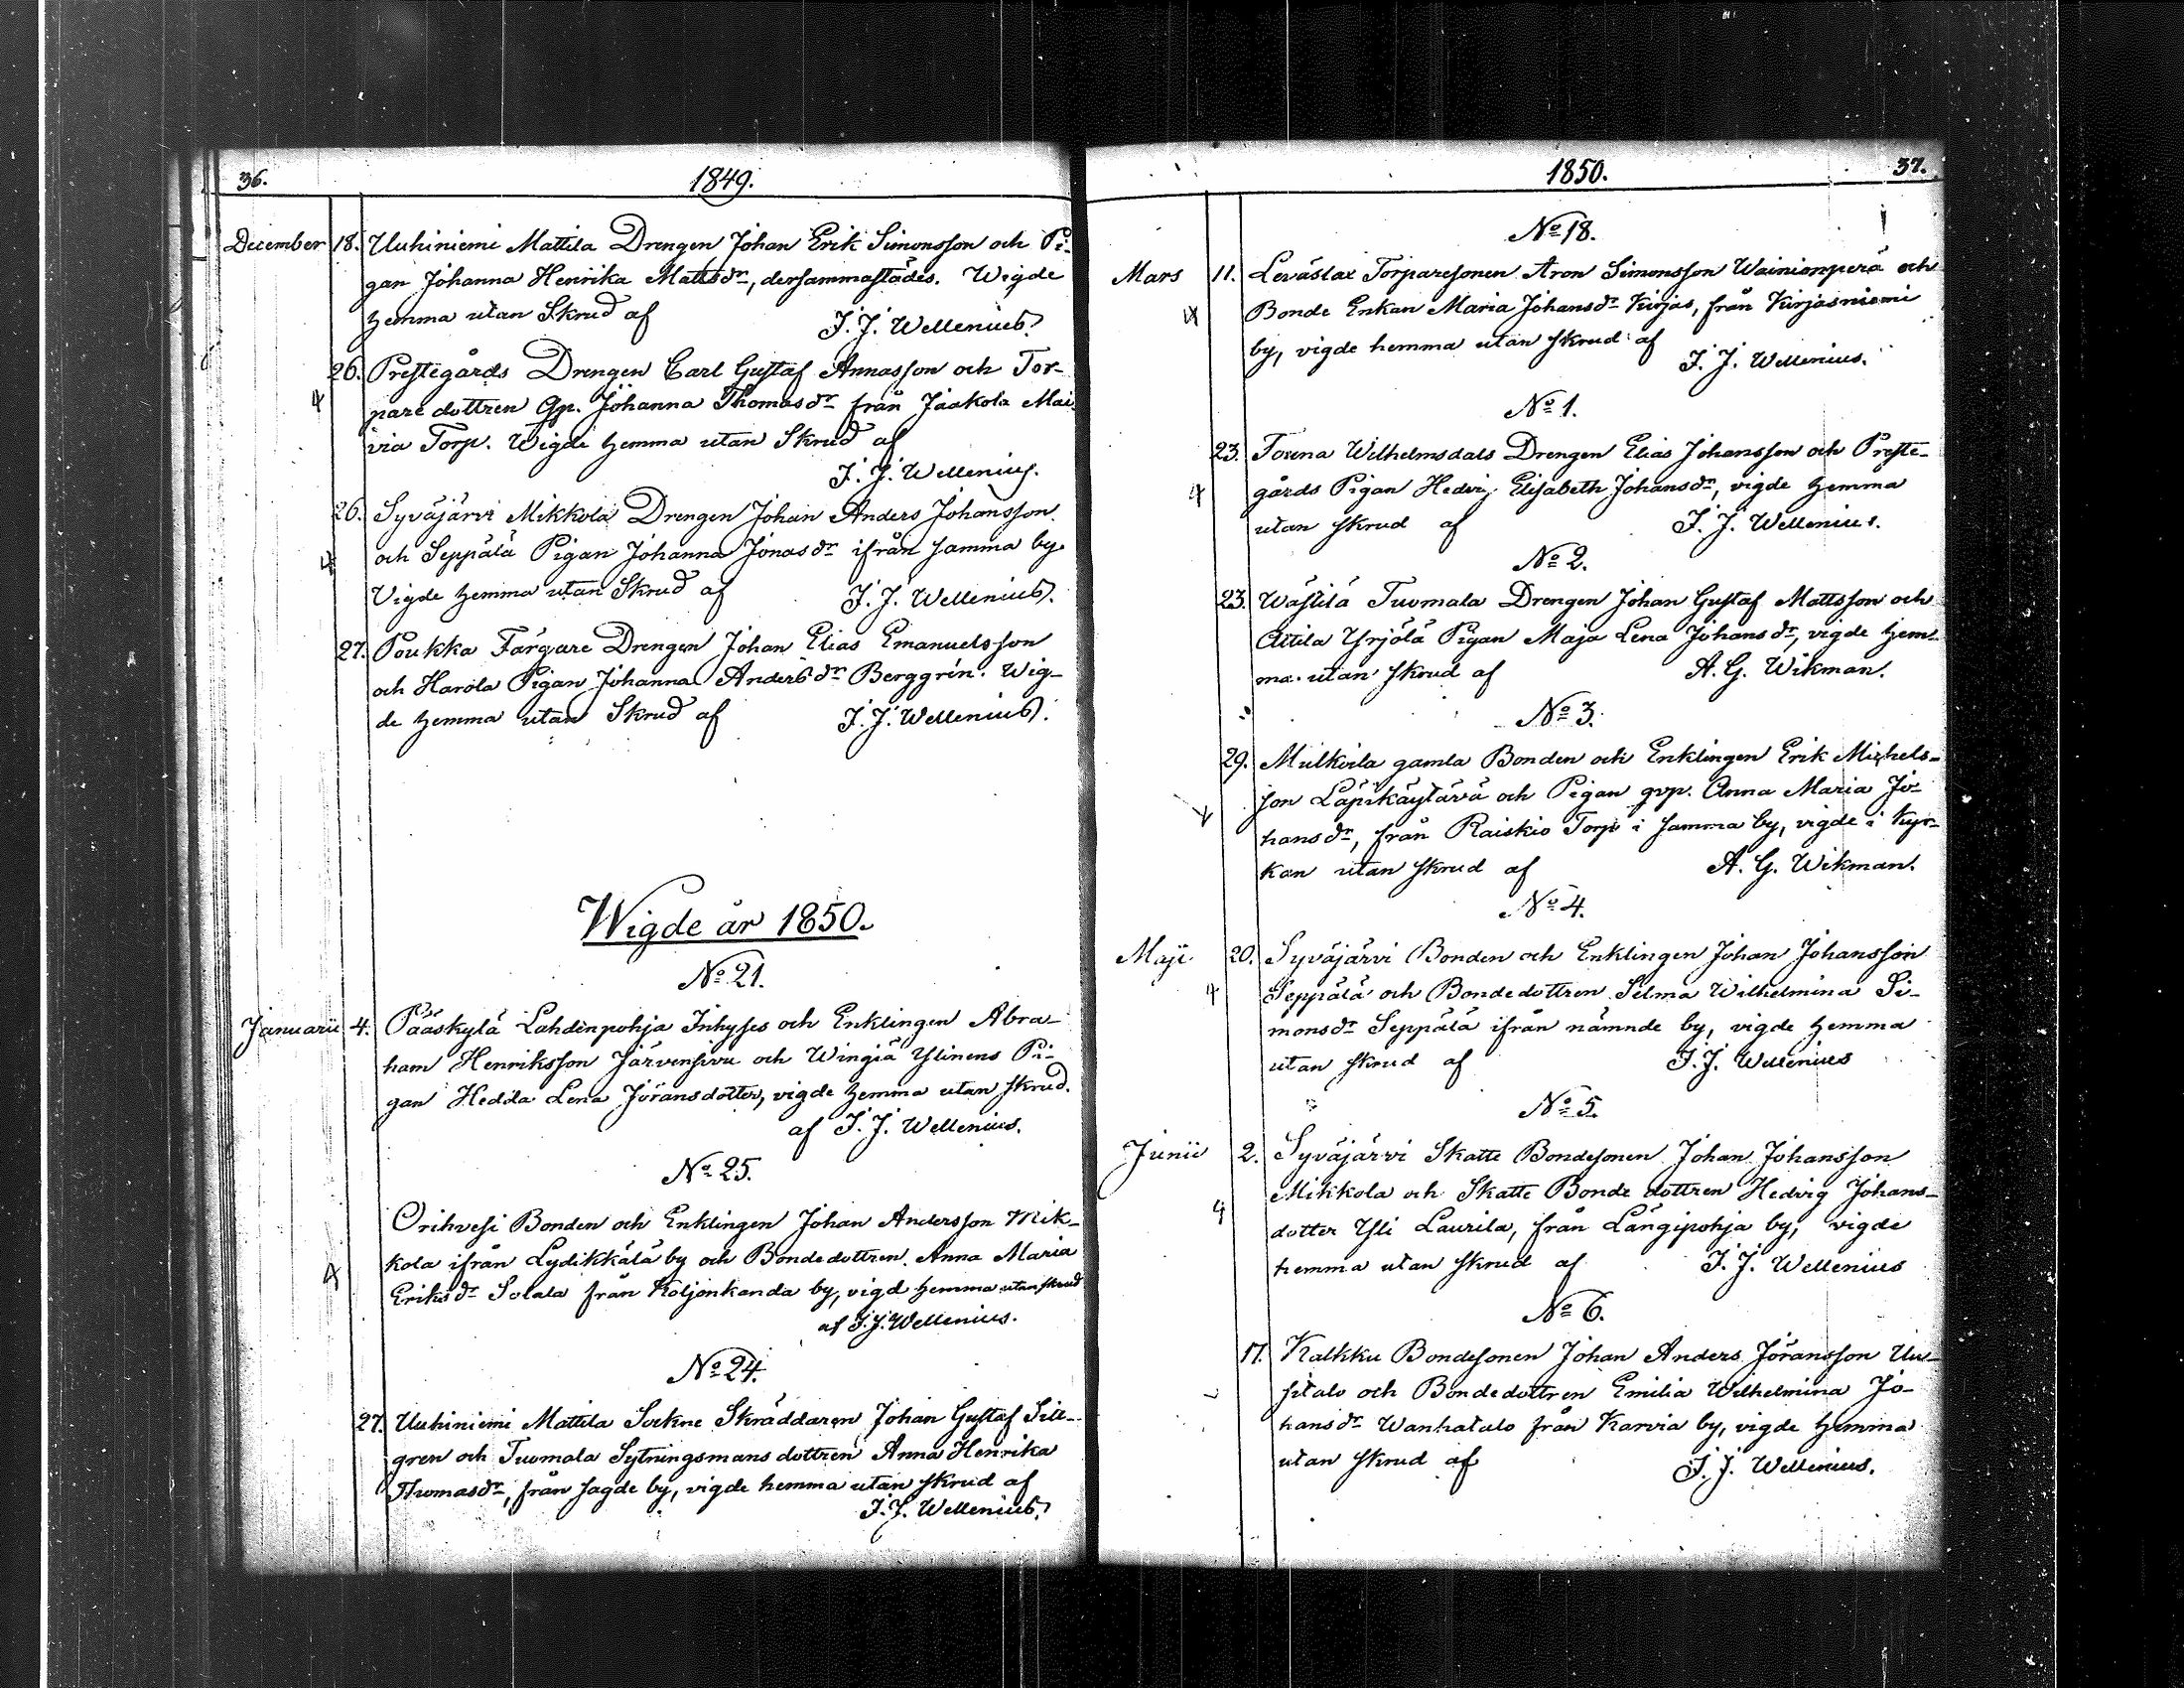 36.
1849.
December 18. Uuhiniemi Mattila Drengen Johan Erik Simonsson och Pi-
gan Johanna Henrika Mattsdr, dersammastädes. Wigde
hemma utan Skrud af J. J. Wellenius.
26. Prestegårds Drengen Carl Gustaf Annasson och Tor-
pare dottren Qp. Johanna Thomasdr från Jaakola Mai-
via Torp. Wigde hemma utan Skrud af
J. J. Wellenius.
26. Syväjärvi Mikkola Drengen Johan Anders Johansson
och Seppälä Pigan Johanna Jonasdr ifrån samma by.
Vigde hemma utan Skrud af J. J. Wellenius.
27. Poukka Färgare Drengen Johan Elias Emanuelsson
och Harola Pigan Johanna Andersdr Berggrén. Wig-
de hemma utan Skrud af J. J. Wellenius.
Wigde år 1850.
No 21.
Januarii 4. Pääskylä Lahdinpohja Inhyses och Enklingen Abra-
ham Henriksson Järvensivu och Wingiä Ylinens Pi-
gan Hedda Lena Jöransdotter, vigde hemma utan skrud.
af J. J. Wellenius.
No 25.
Orihvesi Bonden och Enklingen Johan Andersson Mik-
kola ifrån Lydikkälä by och Bondedottren Anna Maria
Eriksdr Solala från Koljonkanda by, vigd hemma utan skrud
af J. J. Wellenius.
No 24.
27. Uuhiniemi Mattila Sockne Skräddaren Johan Gustaf Sill-
gren och Tuomala Sytningsmans dottren Anna Henrika
Thomasdr, från sagde by, vigde hemma utan skrud af
J. J. Wellenius.
1850.
37.
No 18.
Mars 11. Leväslax Torparesonen Aron Simonsson Wainionperä och
Bonde Enkan Maria Johansdr Kirjas, från Kirjasniemi
by, vigde hemma utan skrud af
J. J. Wellenius.
No 1.
23. Touna Wilhelmsdals Drengen Elias Johansson och Preste-
gårds Pigan Hedvig Elisabeth Johansdr, vigde hemma
utan skrud af J. J. Wellenius.
No 2.
23. Wästilä Tuomala Drengen Johan Gustaf Mattsson och
Attila Yrjölä Pigan Maja Lena Johansdr, vigde hem-
ma utan skrud af A. G. Wikman.
No 3.
29. Mulkoila gamla Bonden och Enklingen Erik Michels-
son Läpikäytävä och Pigan qvp. Anna Maria Jo-
hansdr, från Raiskio Torp i samma by, vigde i Kyr-
kan utan skrud af A. G. Wikman.
No 4.
Maji 20. Syväjärvi Bonden och Enklingen Johan Johansson
Seppälä och Bondedottren Selma Wilhelmina Si-
monsdr Seppälä ifrån nämnde by, vigde hemma
utan skrud af J. J. Wellenius
No 5.
Junii 2. Syväjärvi Skatte Bondesonen Johan Johansson
Mikkola och Skatte Bonde dottren Hedvig Johans-
dotter Yli Laurila, från Längipohja by, vigde
hemma utan skrud af J. J. Wellenius
No 6.
17. Kalkku Bondesonen Johan Anders Jöransson Uu-
sitalo och Bondedottren Emilia Wilhelmina Jo-
hansdr Wanhatalo från Karvia by, vigde hemma
utan skrud af J. J. Wellenius.